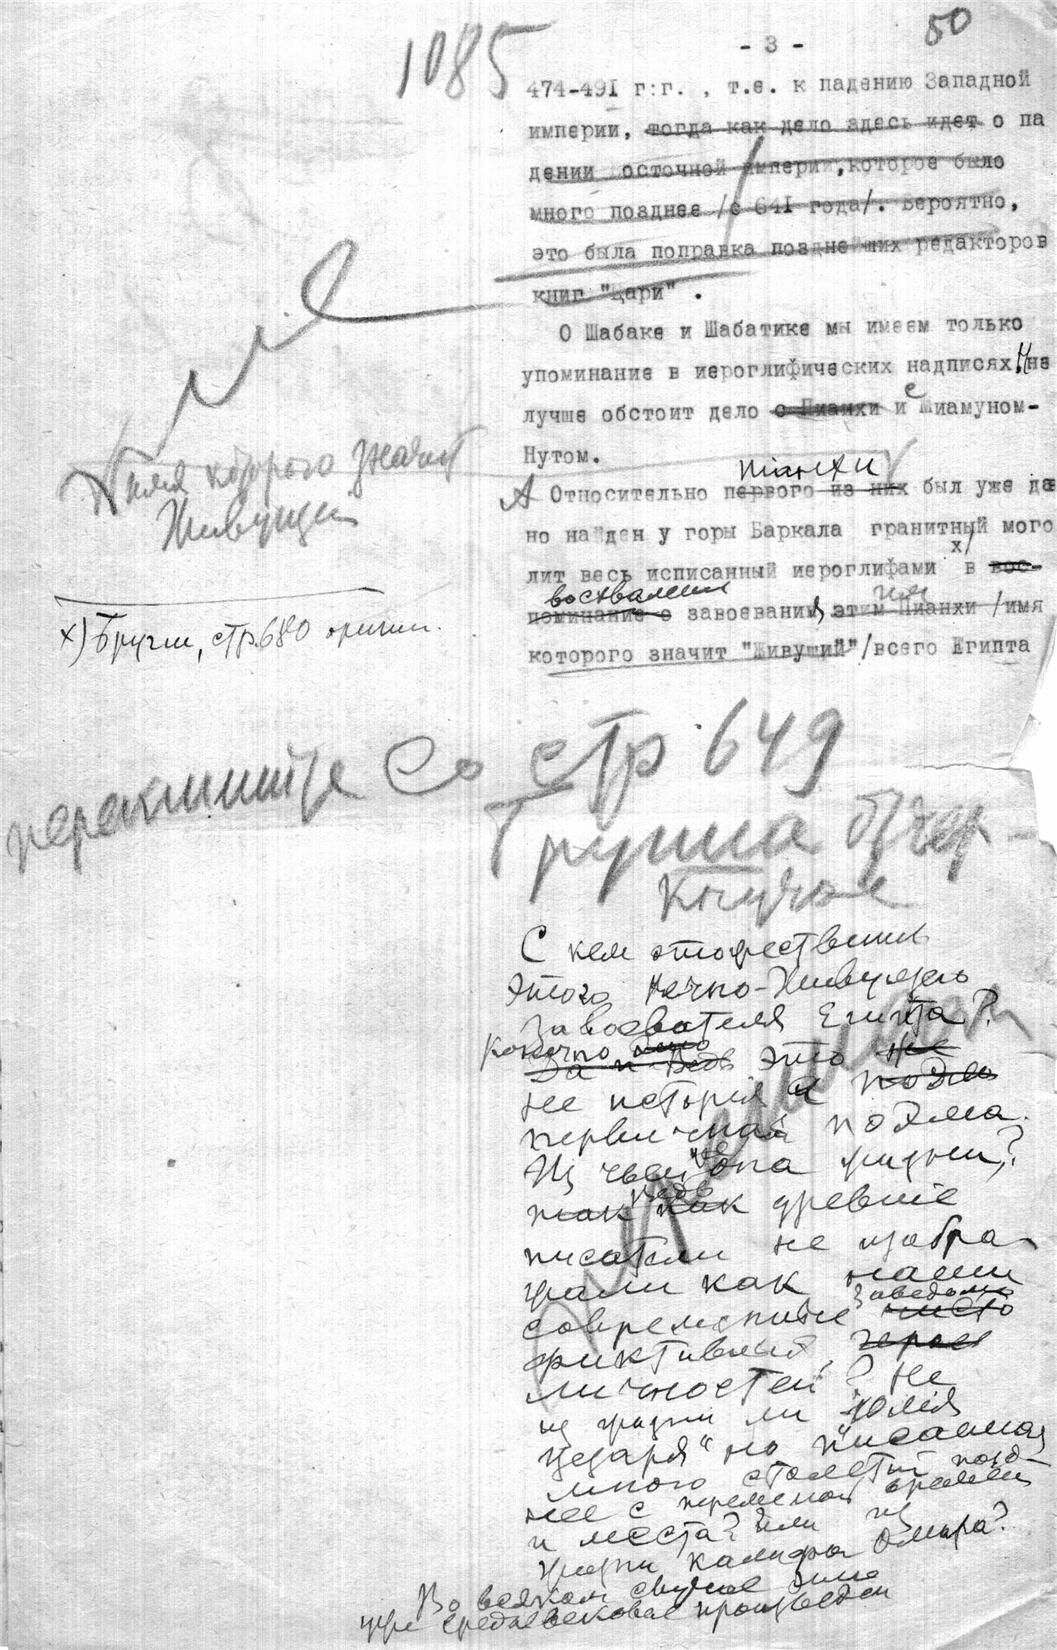 1085
- 3 -
50
474-49I г:г. , т.е. к падению Западной
империи, тогда как дело здесь идет о па
дении Восточной империи,которое было
много позднее /с 64I года/. Вероятно,
это была поправка позднейших редакторов
книг "Цари" .
О Шабаке и Шабатике мы имеем только
упоминание в иероглифических надписях. Не
лучше обстоит дело с Пианхи и с Миамуном-
Нутом.
Пианхи
А Относительно первого из них был уже да
но найден у горы Баркала гранитный моно
лит весь исписанный иероглифами х/ в вос-
восхваление
поминание о завоевании, этим Пианхи /имя
которого значит "Живущий"/всего Египта
имя которого значит
Живущий
х) Бругш, стр. 680 оригин.
перекиньте со стр 649
Группа
С кем отождествить
этого Вечно-Живущего
завоевателя Египта?
Конечно это не
не история а поэма
первичная поэма.
Из чьей она жизни?
Ведь древние
писатели не изобра-
жали как наши
современные заведомо чисто
фиктивных героев
личностей? Не
из жизни ли "Юлия
Цезаря" но писанная
много столетий позд-
нее с переменой времени
и места? Или из
жизни калифа Омара?
Во всяком случае это
уже средневековое произведен